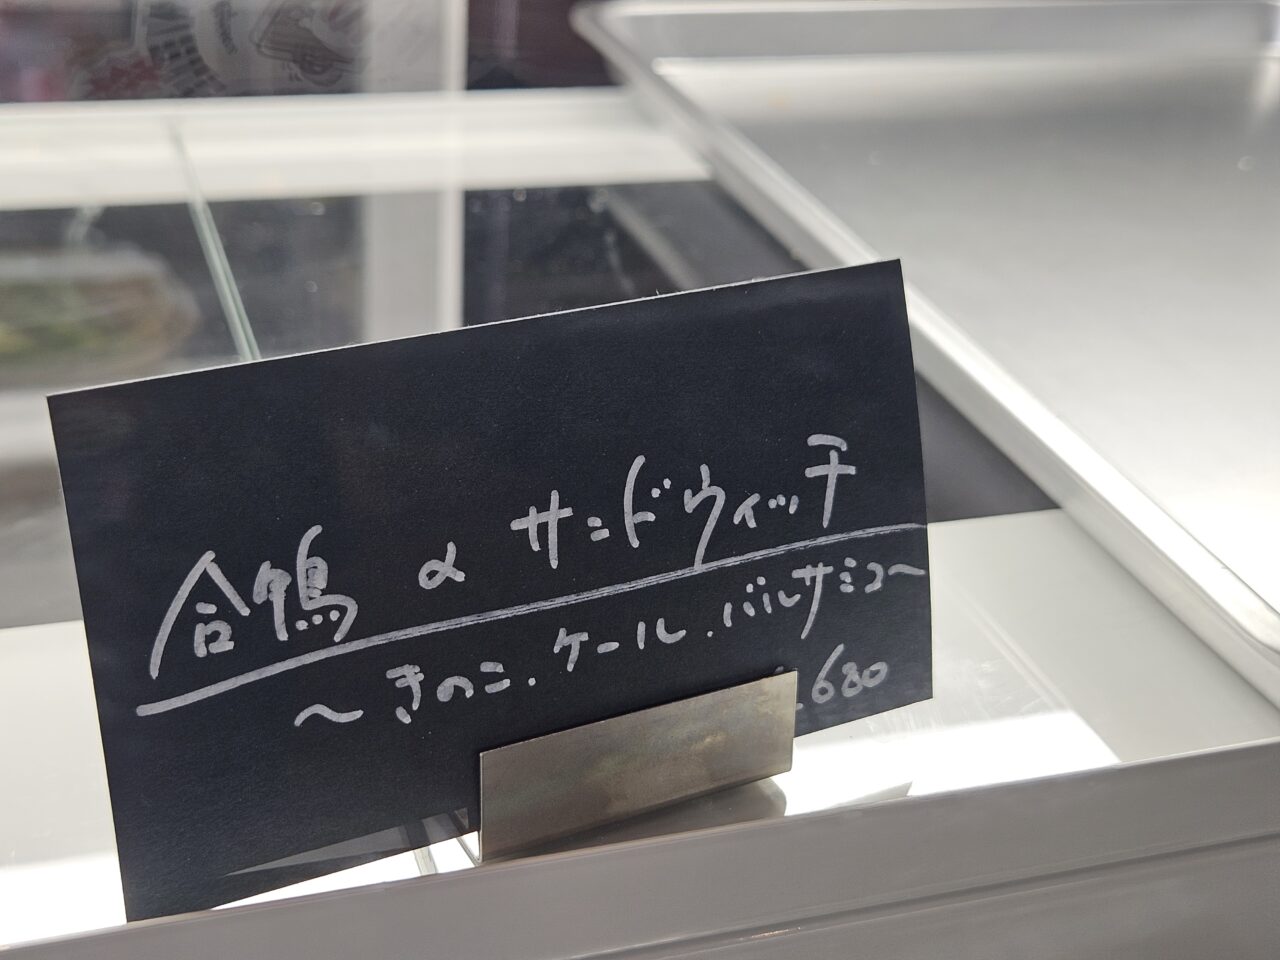 合鴨のサンドウィッチ
〜きのこ.ケール.バルサミコ〜
680